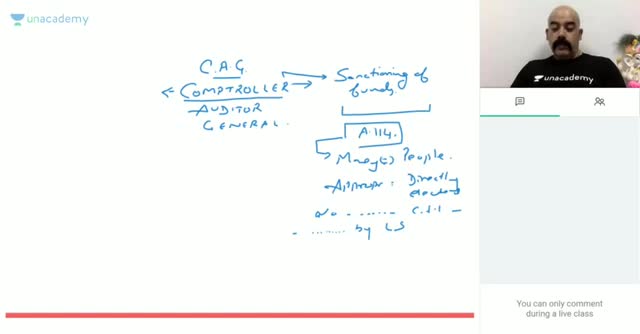 unacademy
C.A.G.
COMPTROLLER
AUDITOR
GENERAL.
Sanctioning of
funds.
A.114.
Money(s) People.
Approp: Directly
elected
No ........ C.F.I –
- ........ by LS
unacademy
You can only comment
during a live class